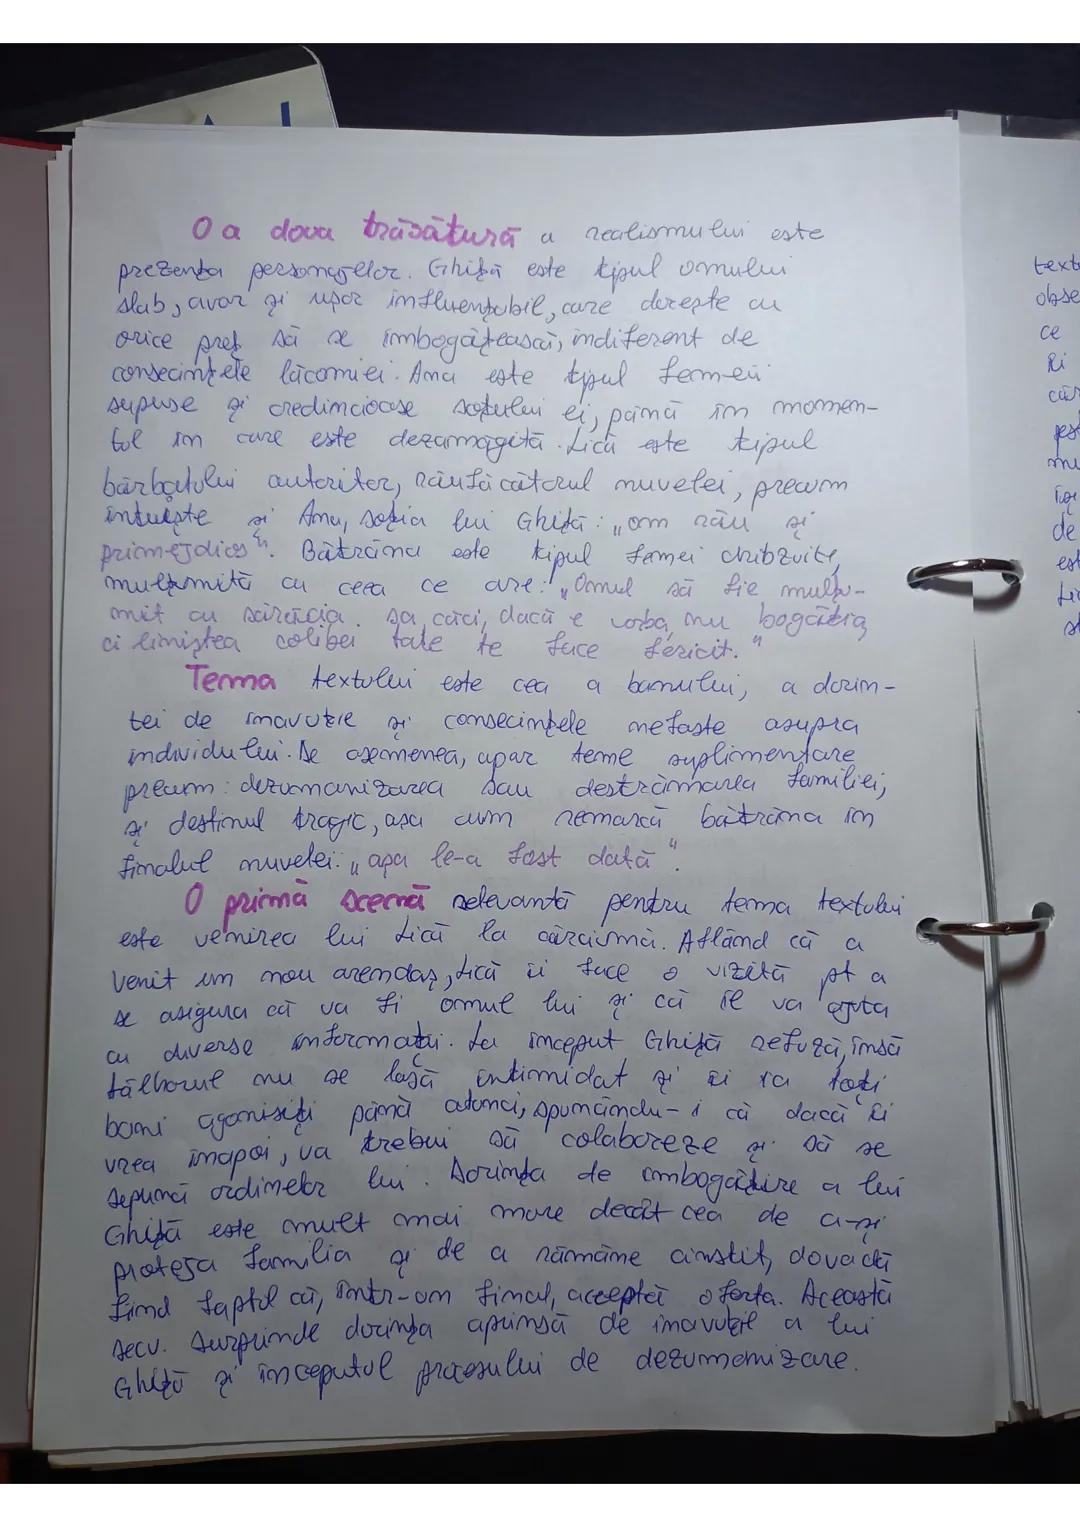 O a doua trăsătură a realismului este
prezența personajelor. Ghiță este tipul omului
slab, avar și ușor influențabil, care dorește cu
orice preț să se îmbogățească, indiferent de
consecințele lăcomiei. Ana este tipul femeii
supuse și credincioase soțului ei, până în momen-
tul în care este dezamăgită. Lică este tipul
bărbatului autoritar, răufăcătorul nuvelei, precum
intuiește și Ana, soția lui Ghiță: „om rău și
primejdios". Bătrâna este tipul femei chibzuite,
mulțumită cu ceea ce are: „Omul să fie mulțu-
mit cu sărăcia sa, căci, dacă e vorba, nu bogăția,
ci liniștea colibei tale te face fericit."
Tema textului este cea a banului, a dorin-
ței de înavuție și consecințele nefaste asupra
individului. De asemenea, apar teme suplimentare
precum: dezumanizarea sau destrămarea familiei,
și destinul tragic, așa cum remarcă bătrâna în
finalul nuvelei: „așa le-a fost dată".
O primă scenă relevantă pentru tema textului
este venirea lui Lică la cârciumă. Aflând că a
venit un nou arendaș, Lică îi face o vizită pt a
se asigura că va fi omul lui și că îl va ajuta
cu diverse informații. La început Ghiță refuză, însă
tâlharul nu se lasă intimidat și îi ia toți
bani agonisiți până atunci, spunându-i că dacă îi
vrea înapoi, va trebui să colaboreze și să se
supună ordinelor lui. Dorința de îmbogățire a lui
Ghiță este mult mai mare decât cea de a-și
proteja familia și de a rămâne cinstit, dovadă
fiind faptul că, într-un final, acceptă oferta. Această
secv. surprinde dorința aprinsă de înavuțire a lui
Ghiță și începutul procesului de dezumanizare.
text
obse
ce
îi
de
est